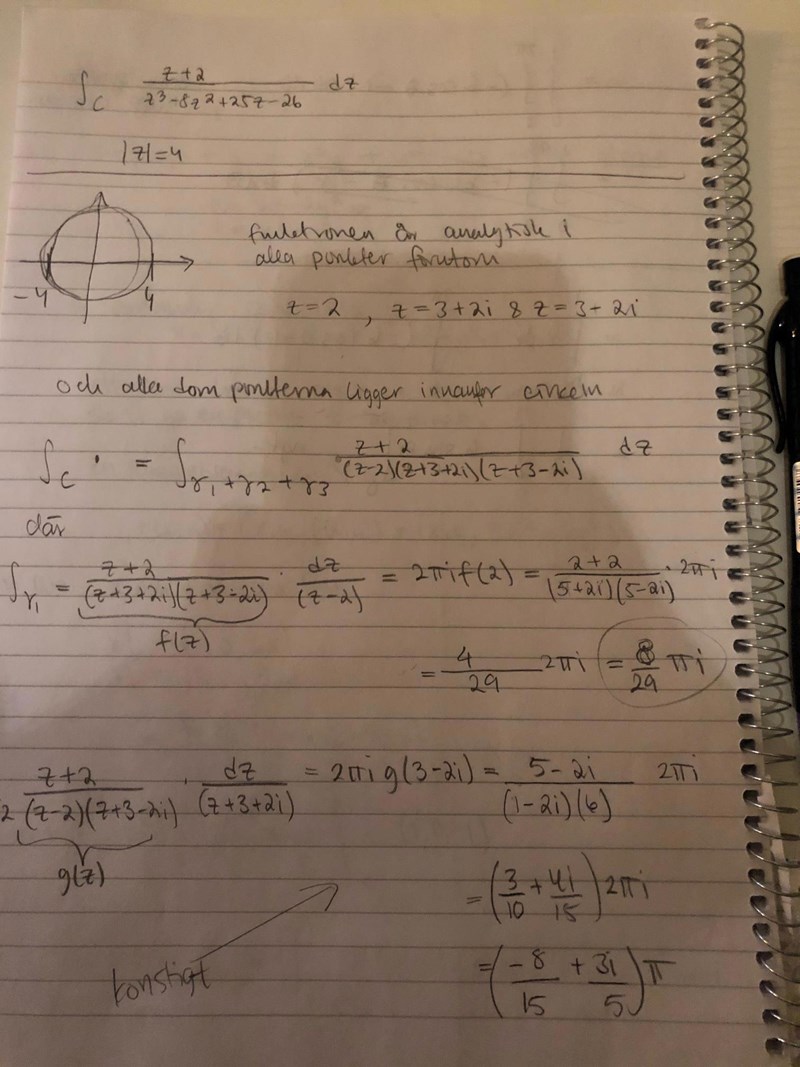 ∫_C (z+2)/(z³-8z²+25z-26) dz
|z|=4
-4 4
funktionen är analytisk i
alla punkter förutom
z=2 , z=3+2i & z=3-2i
och alla dom punkterna ligger innanför cirkeln
∫_C · = ∫_γ₁+γ₂+γ₃ (z+2)/((z-2)(z+3+2i)(z+3-2i)) dz
där
∫_γ₁ = (z+2)/((z+3+2i)(z+3-2i)) · dz/(z-2) = 2πi f(2) = (2+2)/((5+2i)(5-2i)) · 2πi
f(z)
= 4/29 2πi = 8/29 πi
2 (z+2)/((z-2)(z+3-2i)) · dz/(z+3+2i) = 2πi g(3-2i) = (5-2i)/((1-2i)(6)) 2πi
g(z)
= (3/10 + 4i/15) 2πi
konstigt
= (-8/15 + 3i/5) π